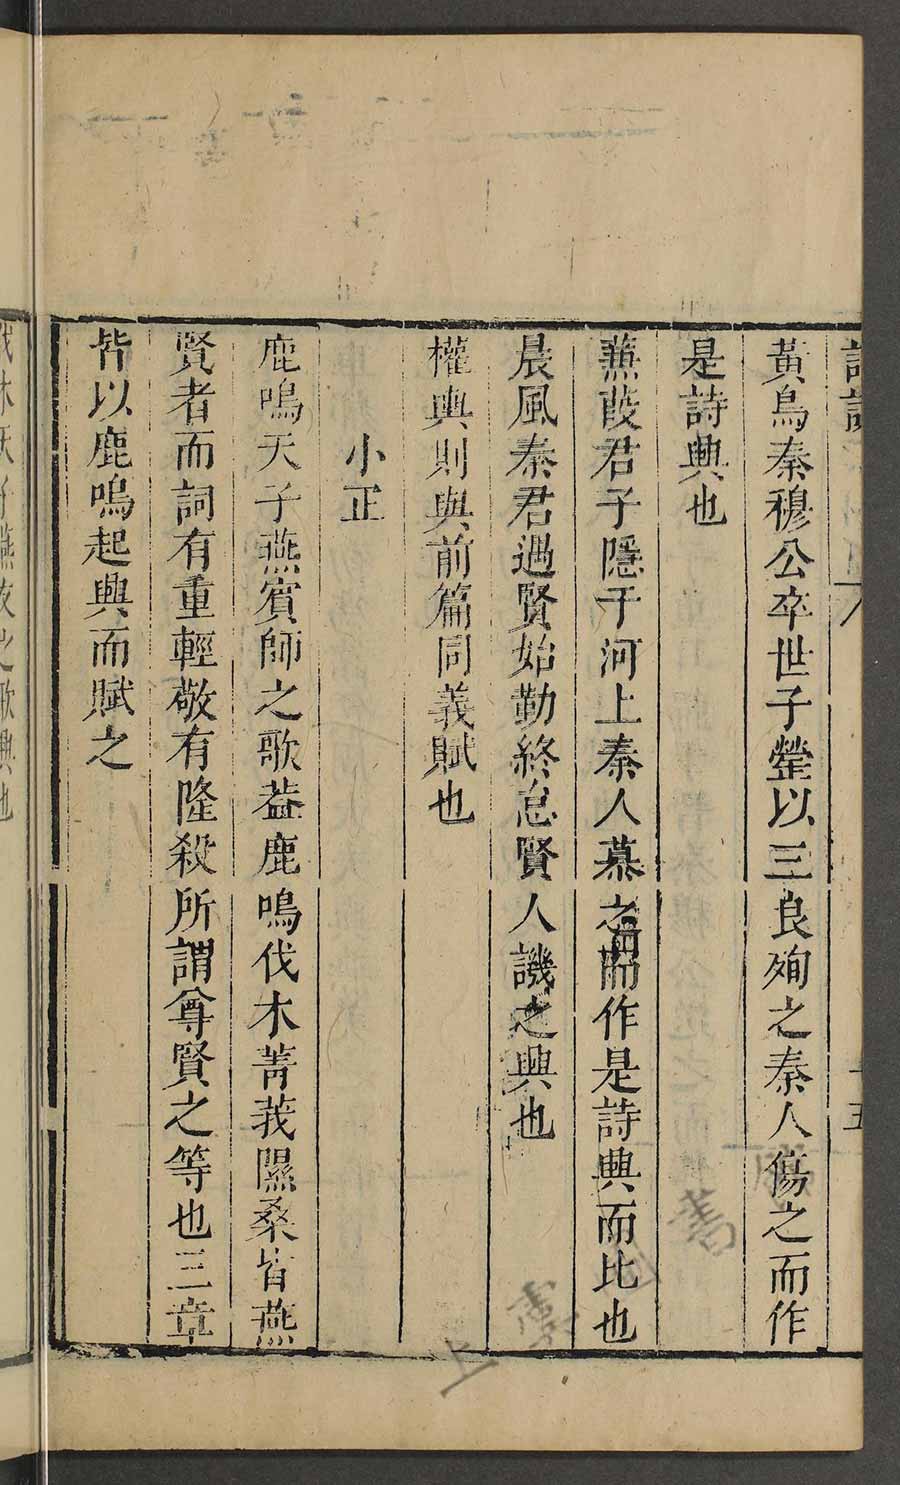 黃鳥秦穆公卒世子罃以三良殉之秦人傷之而作
是詩興也
蒹葭君子隱于河上秦人慕之而作是詩興而比也
晨風秦君遇賢始勤終怠賢人譏之興也
權輿則與前篇同義賦也
小正
鹿鳴天子燕賓師之歌葢鹿鳴伐木菁莪隰桑皆燕
賢者而詞有重輕敬有隆殺所謂尊賢之等也三章
皆以鹿鳴起興而賦之